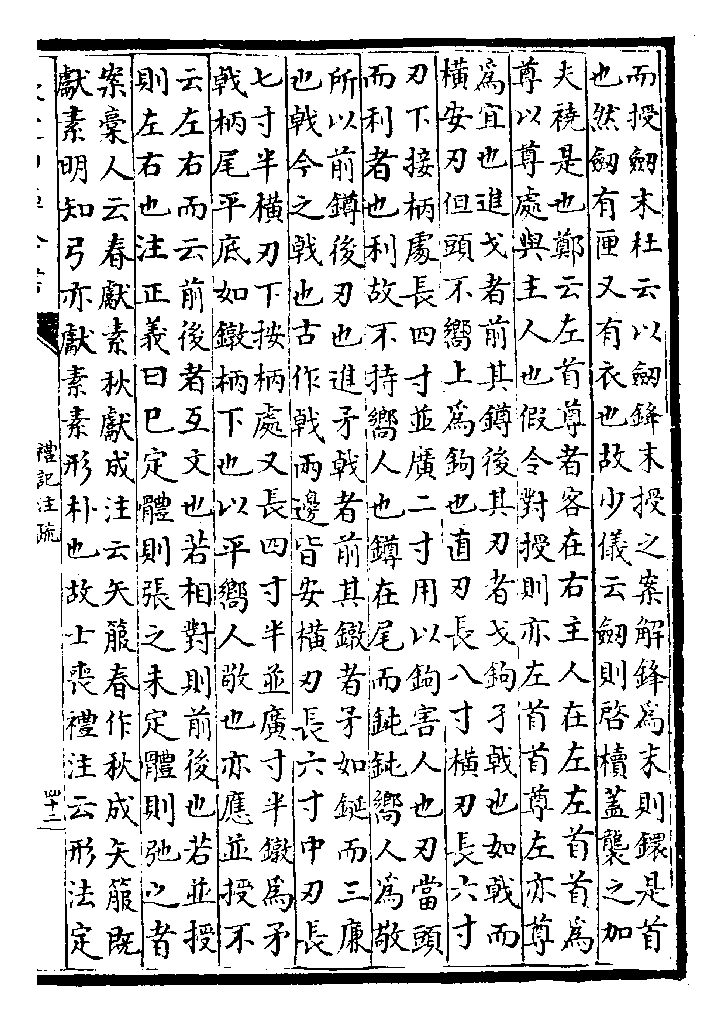 而授劔末杜云以劔鋒末授之案解鋒為末則鐶是首
也然劔有匣又有衣也故少儀云劔則啓櫝蓋襲之加
夫襓是也鄭云左首尊者客在右主人在左左首首為
尊以尊處與主人也假令對授則亦左首首尊左亦尊
為宜也進戈者前其鐏後其刃者戈鉤孑戟也如戟而
橫安刃但頭不嚮上為鉤也直刃長八寸橫刃長六寸
刃下接柄處長四寸並廣二寸用以鉤害人也刃當頭
而利者也利故不持嚮人也鐏在尾而鈍鈍嚮人為敬
所以前鐏後刃也進矛戟者前其鐓者矛如鋋而三廉
也戟今之戟也古作戟兩邊皆安橫刃長六寸中刃長
七寸半橫刃下按柄處又長四寸半並廣寸半鐓為矛
戟柄尾平底如鐓柄下也以平嚮人敬也亦應並授不
云左右而云前後者互文也若相對則前後也若並授
則左右也注正義曰已定體則張之未定體則弛之者
案稾人云春獻素秋獻成注云矢箙春作秋成矢箙既
獻素明知弓亦獻素素形朴也故士喪禮注云形法定
禮記注疏
四十二